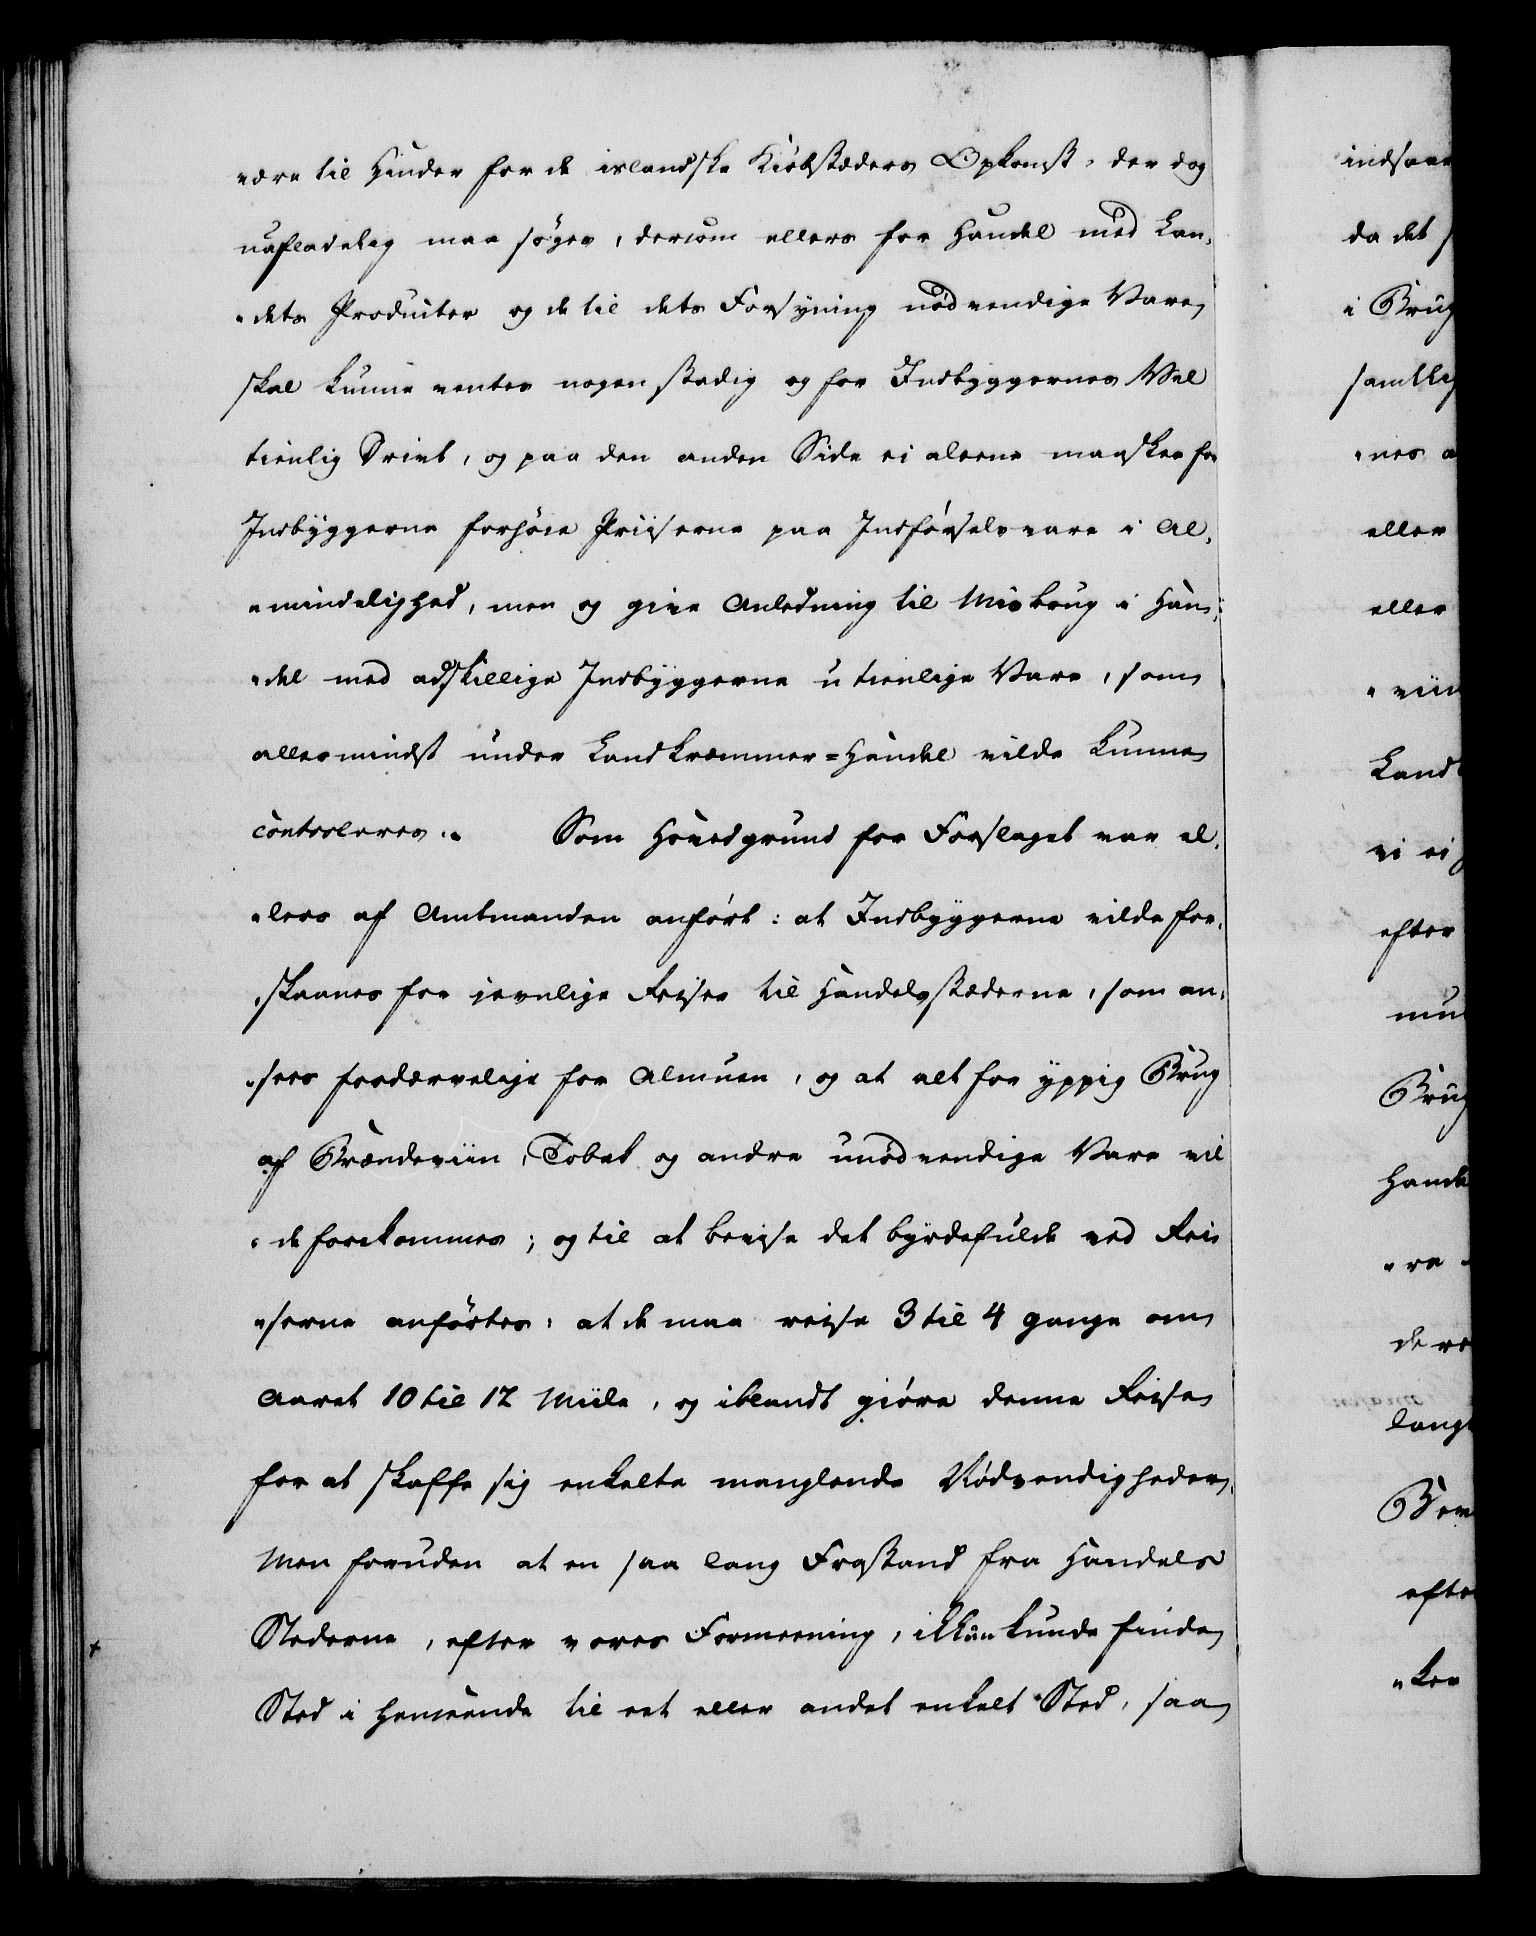 være til Hinder for de islandske Kiøbstæders Opkomst, der dog
uafladelig maa søges, dersom ellers for Handel med Lan,
"dets Producter og de til dets Forsyning nødvendige Vare,
skal kunne ventes nogen stadig og for Indbyggernes Vel
tienlig Drivt, og paa den anden Side ei aleene maaskee for
Indbyggerne forhøie Priiserne paa Indførselsvare i Al,
"mindelighed, men og give Anledning til Misbrug i Han,
"del med adskillige Indbyggerne utienlige Vare, som
allermindst under Landkræmmer=Handel vilde kunne
controleres." Som Hovedgrund for Forslaget var el,
"lers af Amtmanden anført: at Indbyggerne vilde for,
"skaanes for jevnlige Reiser til Handelsstæderne, som an,
"sees fordærvelige for Almuen, og at alt for yppig Brug
af Brændeviin, Tobak og andre unødvendige Vare vil
"de forekommes; og til at beviise det byrdefulde ved Rei
"serne anførtes: at de maa reise 3 til 4 gange om
Aaret 10 til 12 Miile, og iblandt giøre denne Reise
for at skaffe sig enkelte manglende Nødvendigheder.
Men foruden at en saa lang Frastand fra Handels
Stederne, efter vores Formeening, ikkun kunde finde
Sted i Henseende til eet eller andet enkelt Sted, saa
indsaae
da det
i Brug
samtlig
"nes
eller
eller
"viin
Land
vi ei
efter
mu
Brug
Hand
"re
de
lang
efte
"ker